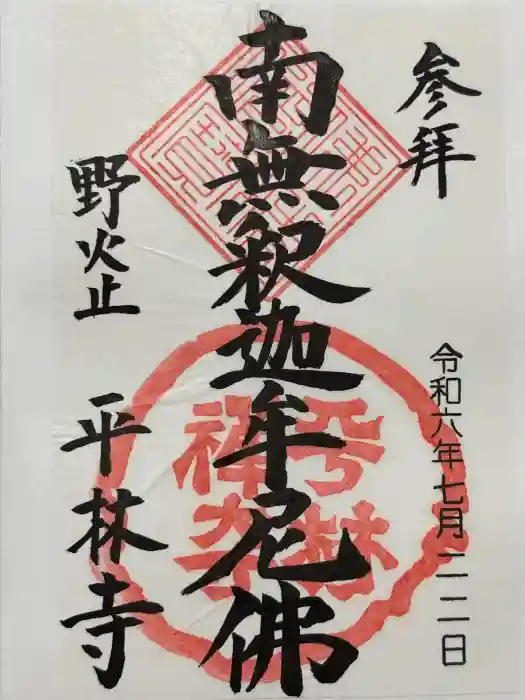 参拝
令和六年七月二二日
南無釈迦牟尼佛
野火止
平林寺
平林
禅寺